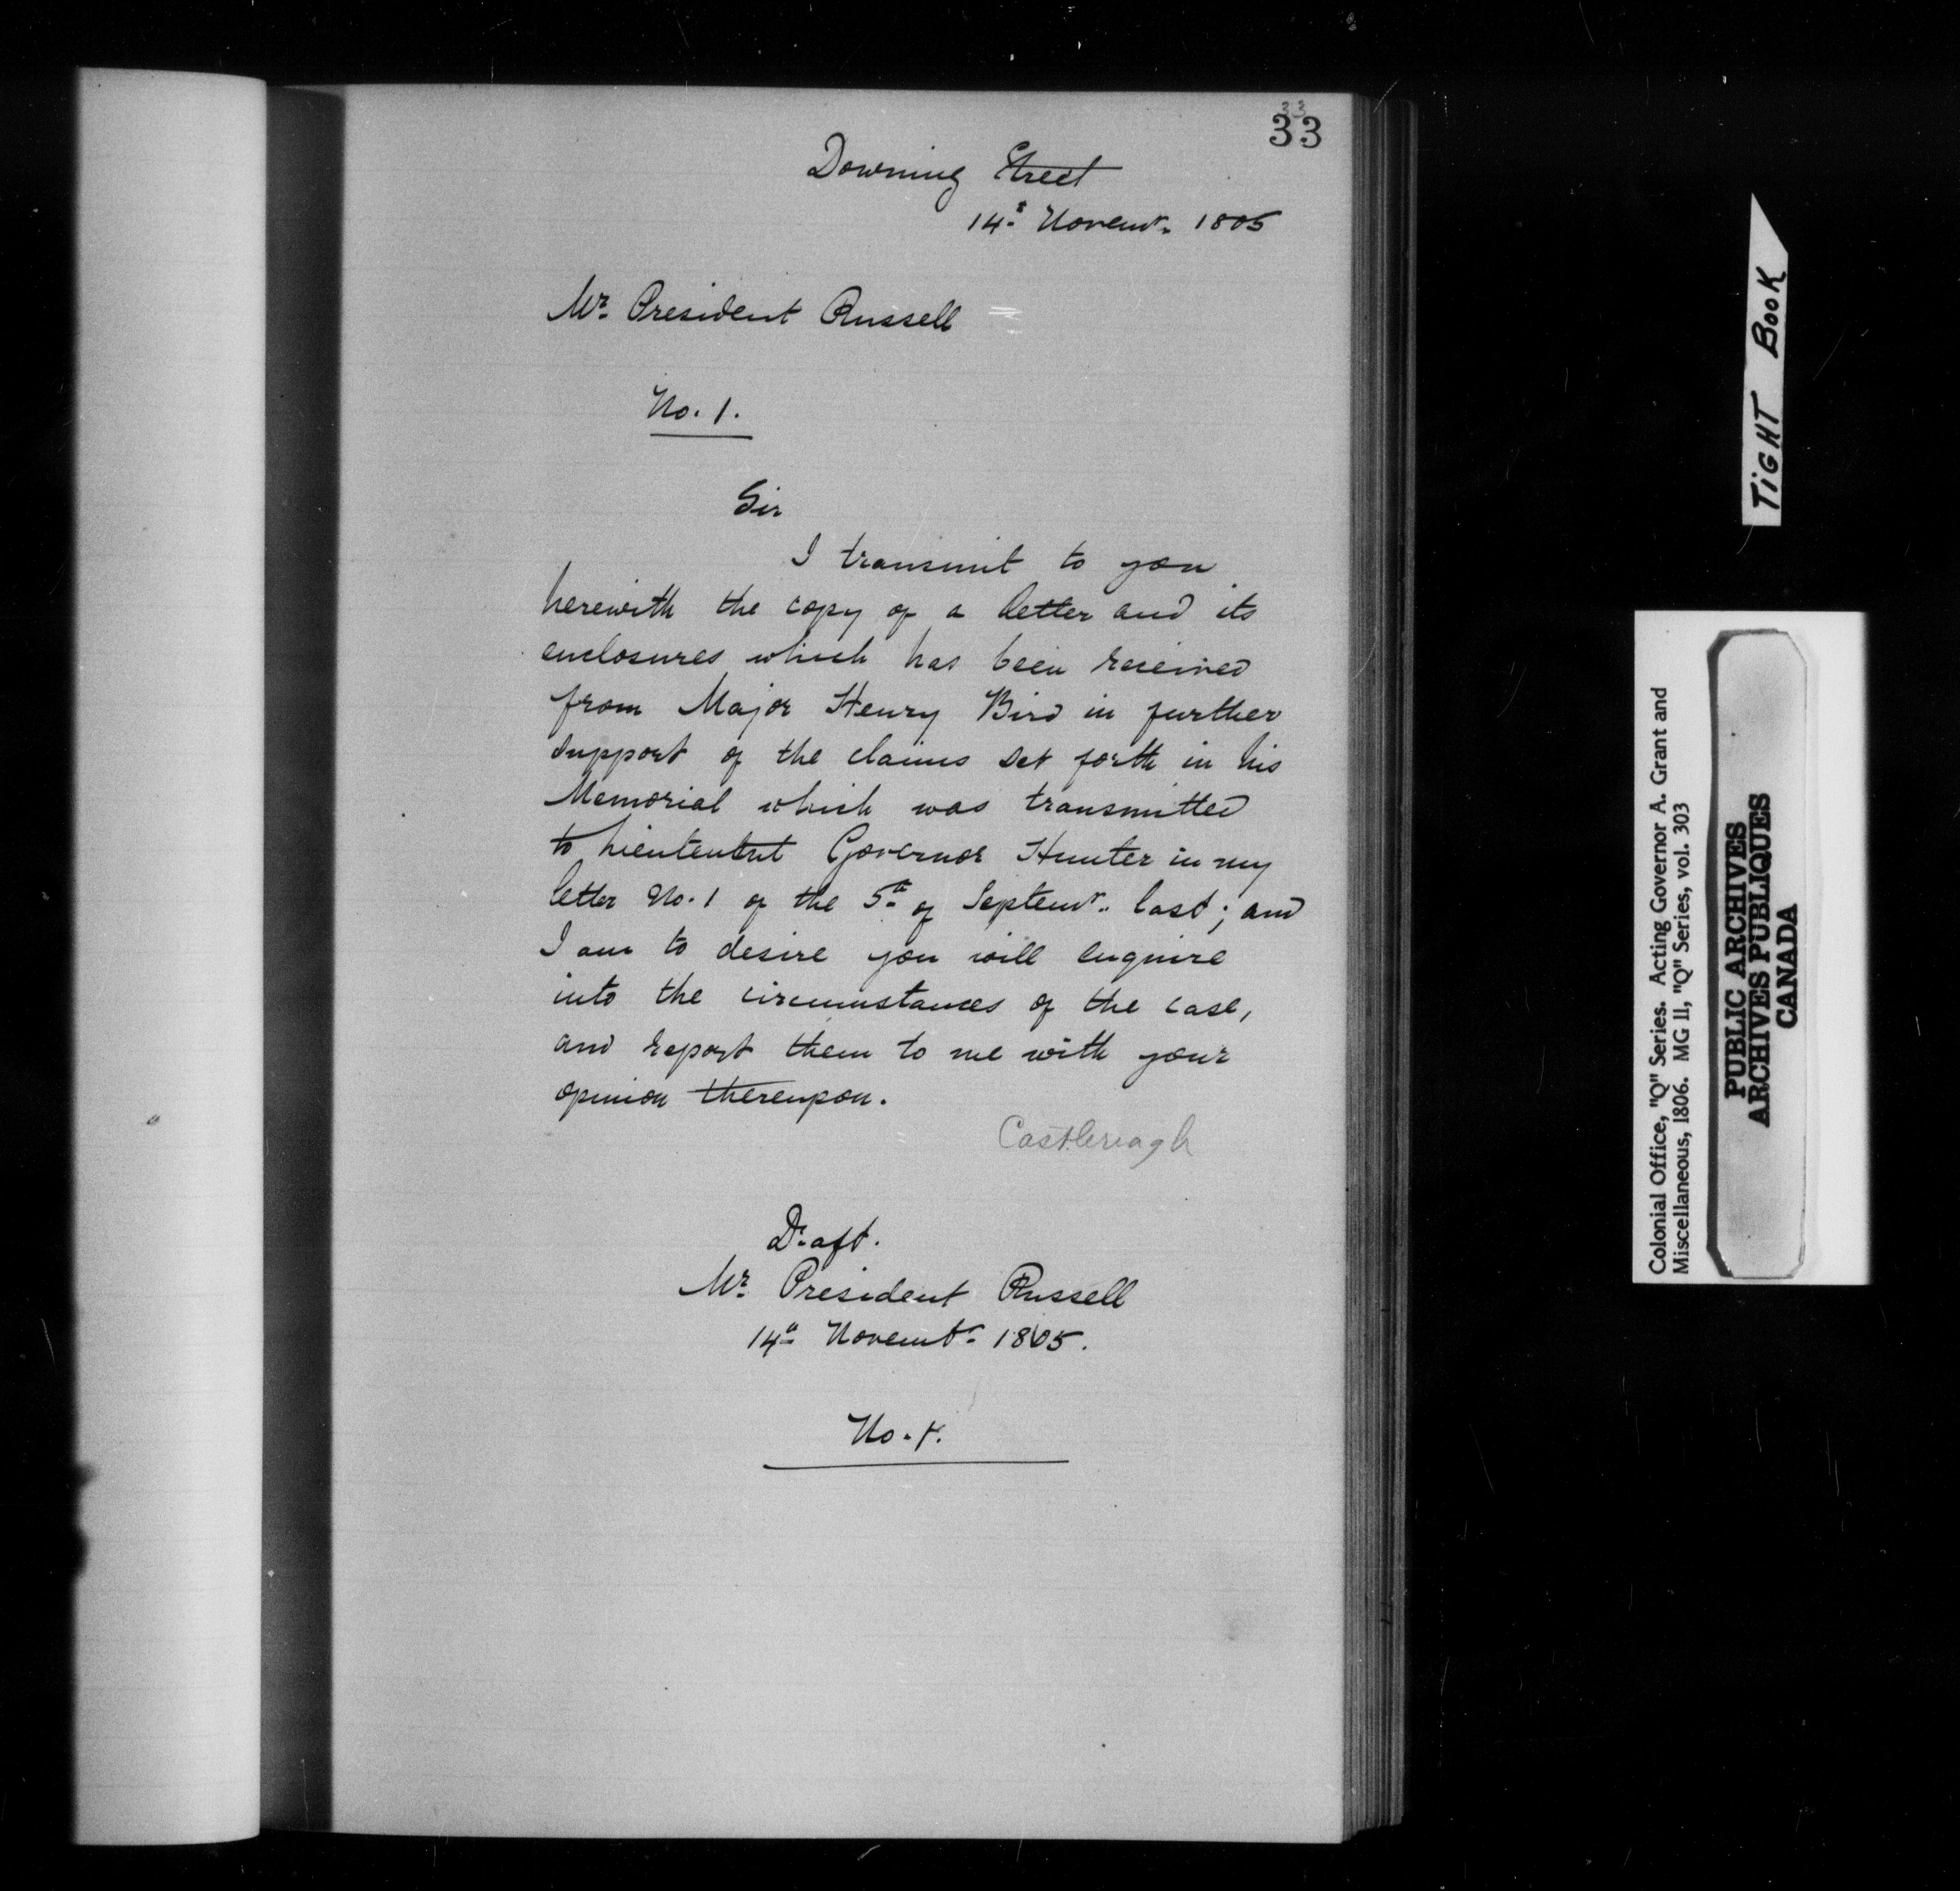 33
33
Downing Street
14th Novemr. 1805
Mr. President Russell
No. 1.
Sir
I transmit to you
herewith the copy of a letter and its
enclosures which has been received
from Major Henry Bird in further
support of the claims set forth in his
Memorial which was transmitted
to Lieutenant Governor Hunter in my
letter No. 1 of the 5th of Septemr. last; and
I am to desire you will enquire
into the circumstances of the case,
and report them to me with your
opinion thereupon.
Castlereagh
Draft.
Mr. President Russell
14th Novembr. 1805.
No. 1.
TIGHT BOOK
Colonial Office, "Q" Series. Acting Governor A. Grant and
Miscellaneous, 1806. MG 11, "Q" Series, vol. 303
PUBLIC ARCHIVES
ARCHIVES PUBLIQUES
CANADA